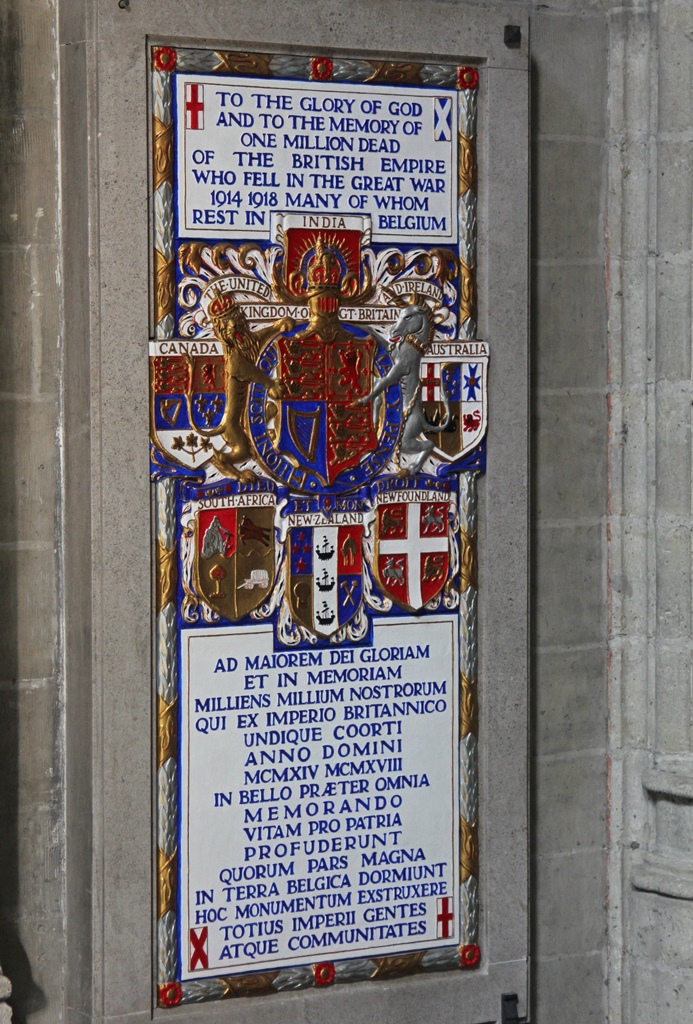 TO THE GLORY OF GOD
AND TO THE MEMORY OF
ONE MILLION DEAD
OF THE BRITISH EMPIRE
WHO FELL IN THE GREAT WAR
1914 1918 MANY OF WHOM
REST IN BELGIUM
INDIA
THE·UNITED KINGDOM·OF GT·BRITAIN AND·IRELAND
CANADA
AUSTRALIA
HONI SOIT PENSE
DIEU ET MON DROIT
SOUTH·AFRICA
NEW·ZEALAND
NEWFOUNDLAND
AD MAIOREM DEI GLORIAM
ET IN MEMORIAM
MILLIENS MILLIUM NOSTRORUM
QUI EX IMPERIO BRITANNICO
UNDIQUE COORTI
ANNO DOMINI
MCMXIV MCMXVIII
IN BELLO PRÆTER OMNIA
MEMORANDO
VITAM PRO PATRIA
PROFUDERUNT
QUORUM PARS MAGNA
IN TERRA BELGICA DORMIUNT
HOC MONUMENTUM EXSTRUXERE
TOTIUS IMPERII GENTES
ATQUE COMMUNITATES